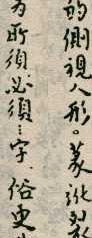 的側視人形。篆訛列
为所須、必須…字、俗更